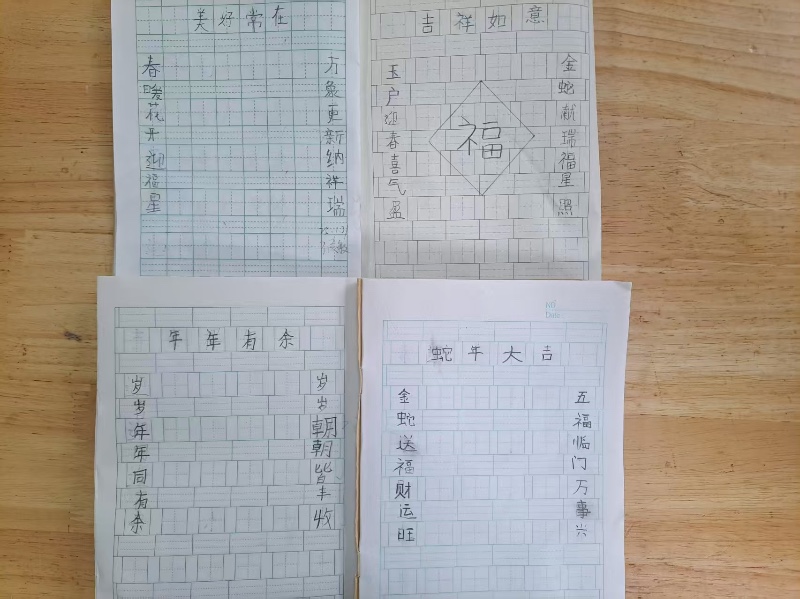 美好常在
春暖花开迎福星
万象更新纳祥瑞
吉祥如意
玉户迎春喜气盈
福
金蛇献瑞福星照
年年有余
岁岁年年同有余
岁岁朝朝皆丰收
No.
Date
蛇年大吉
金蛇送福财运旺
五福临门万事兴